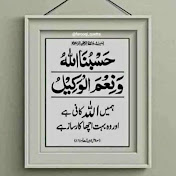 حَسْبُنَا اللهُ
وَنِعْمَ الْوَكِيْلُ
ہمیں اللہ کافی ہے
اور وہ بہت اچھا کارساز ہے